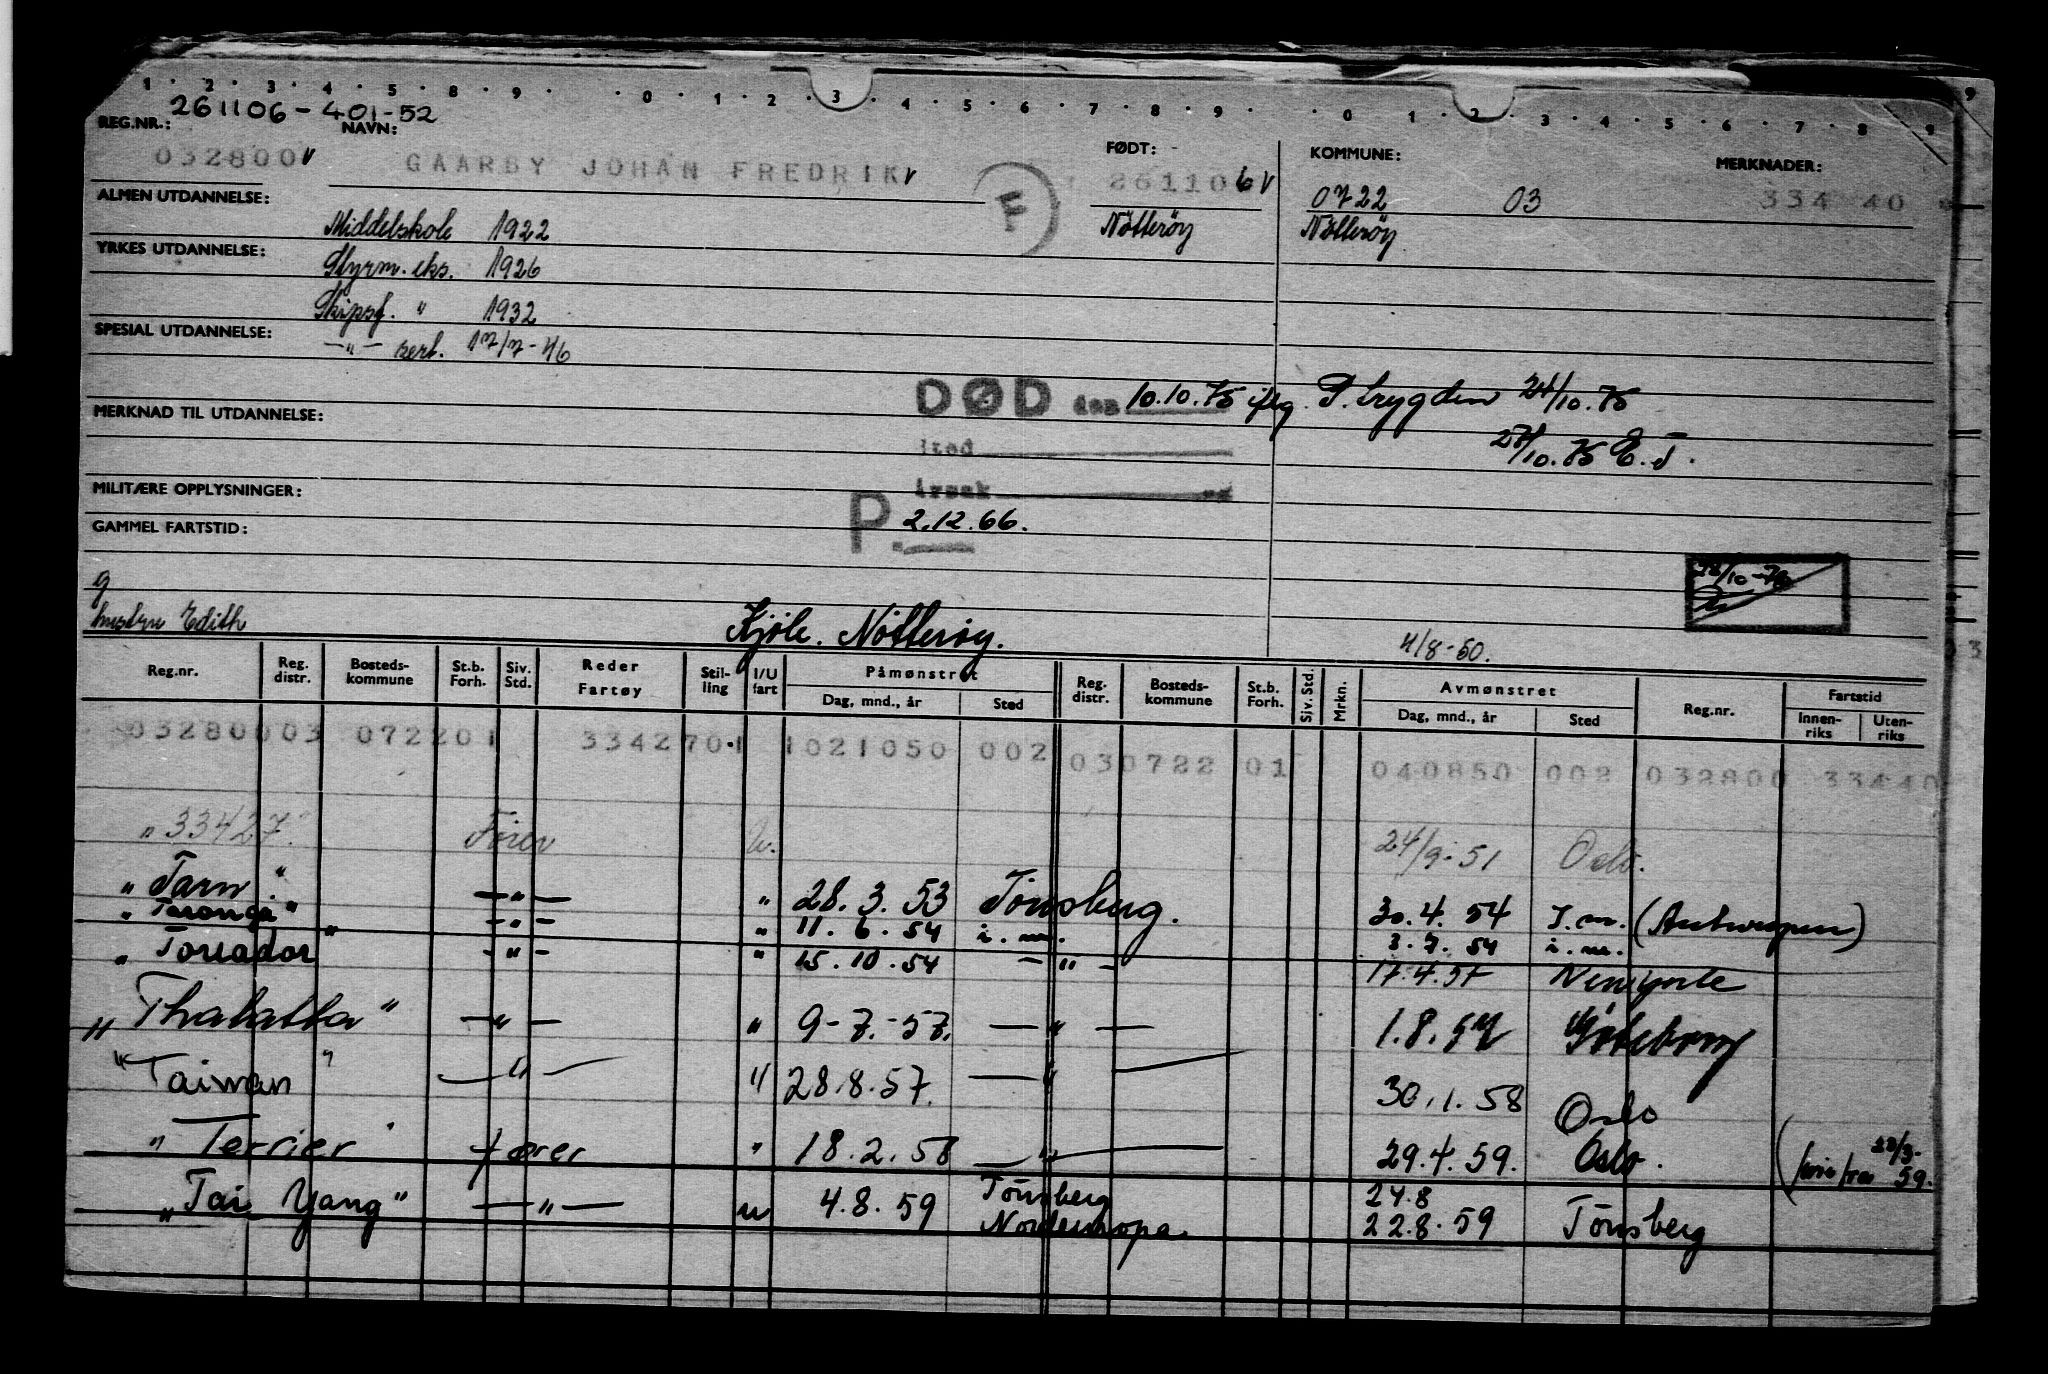 1 2 3 4 5 8 9 0 1 2 3 4 5 6 7 8 9 0 1 2 3 4 5 6 7 8 9
261106-401-52
REG.NR.: NAVN: FØDT: KOMMUNE: MERKNADER:
032800 GAARBY JOHAN FREDRIK 261106 0722 03 334 40
F
ALMEN UTDANNELSE: Middelskole 1922 Nötteröy Nötteröy
YRKES UTDANNELSE: Styrm. eks. 1926
Skipsf. " 1932
SPESIAL UTDANNELSE: -"- sert. 17/7-46
DØD den 10.10.75 iflg. P. trygden 24/10.75
MERKNAD TIL UTDANNELSE:
27/10.75 E.J.
Sted
MILITÆRE OPPLYSNINGER: Årsak
P. 2.12.66.
GAMMEL FARTSTID:
g
hustru Edith Kjöle. Nötteröy. 4/8-50.
Reg.nr. Reg. distr. Bosteds-kommune St.b. Forh. Siv. Std. Reder Fartøy Stil-ling I/U fart Påmønstret Dag, mnd., år Sted Reg. distr. Bosteds-kommune St.b. Forh. Siv. Std. Mrkn. Avmønstret Dag, mnd., år Sted Reg.nr. Fartstid Innen-riks Uten-riks
03280003 072201 33427011021050 002 030722 01 040850 002 032800 33440
" 33427." Förer u. 24/9-51 Oslo.
" Tarn." -"- " 28.3.53 Tönsberg. 30.4.54 I.m. (Antwerpen)
" Taronga" -"- " 11.6.54 i.m. 3.7.54 i.m.
" Toreador " -"- " 15.10.54 -"- 17.4.57 New York
" Thalatta" -"- " 9-7.-57. -"- 1.8.57 Göteborg
"Taiwan" -"- " 28.8.57. -"- 30.1.58 Oslo
" Terrier" fører " 18.2.58 -"- 29.4.59. Oslo. 
"Tai Yang" -"- u 4.8.59 Tönsberg Nordeuropa. 24.8 22.8.59 Tönsberg